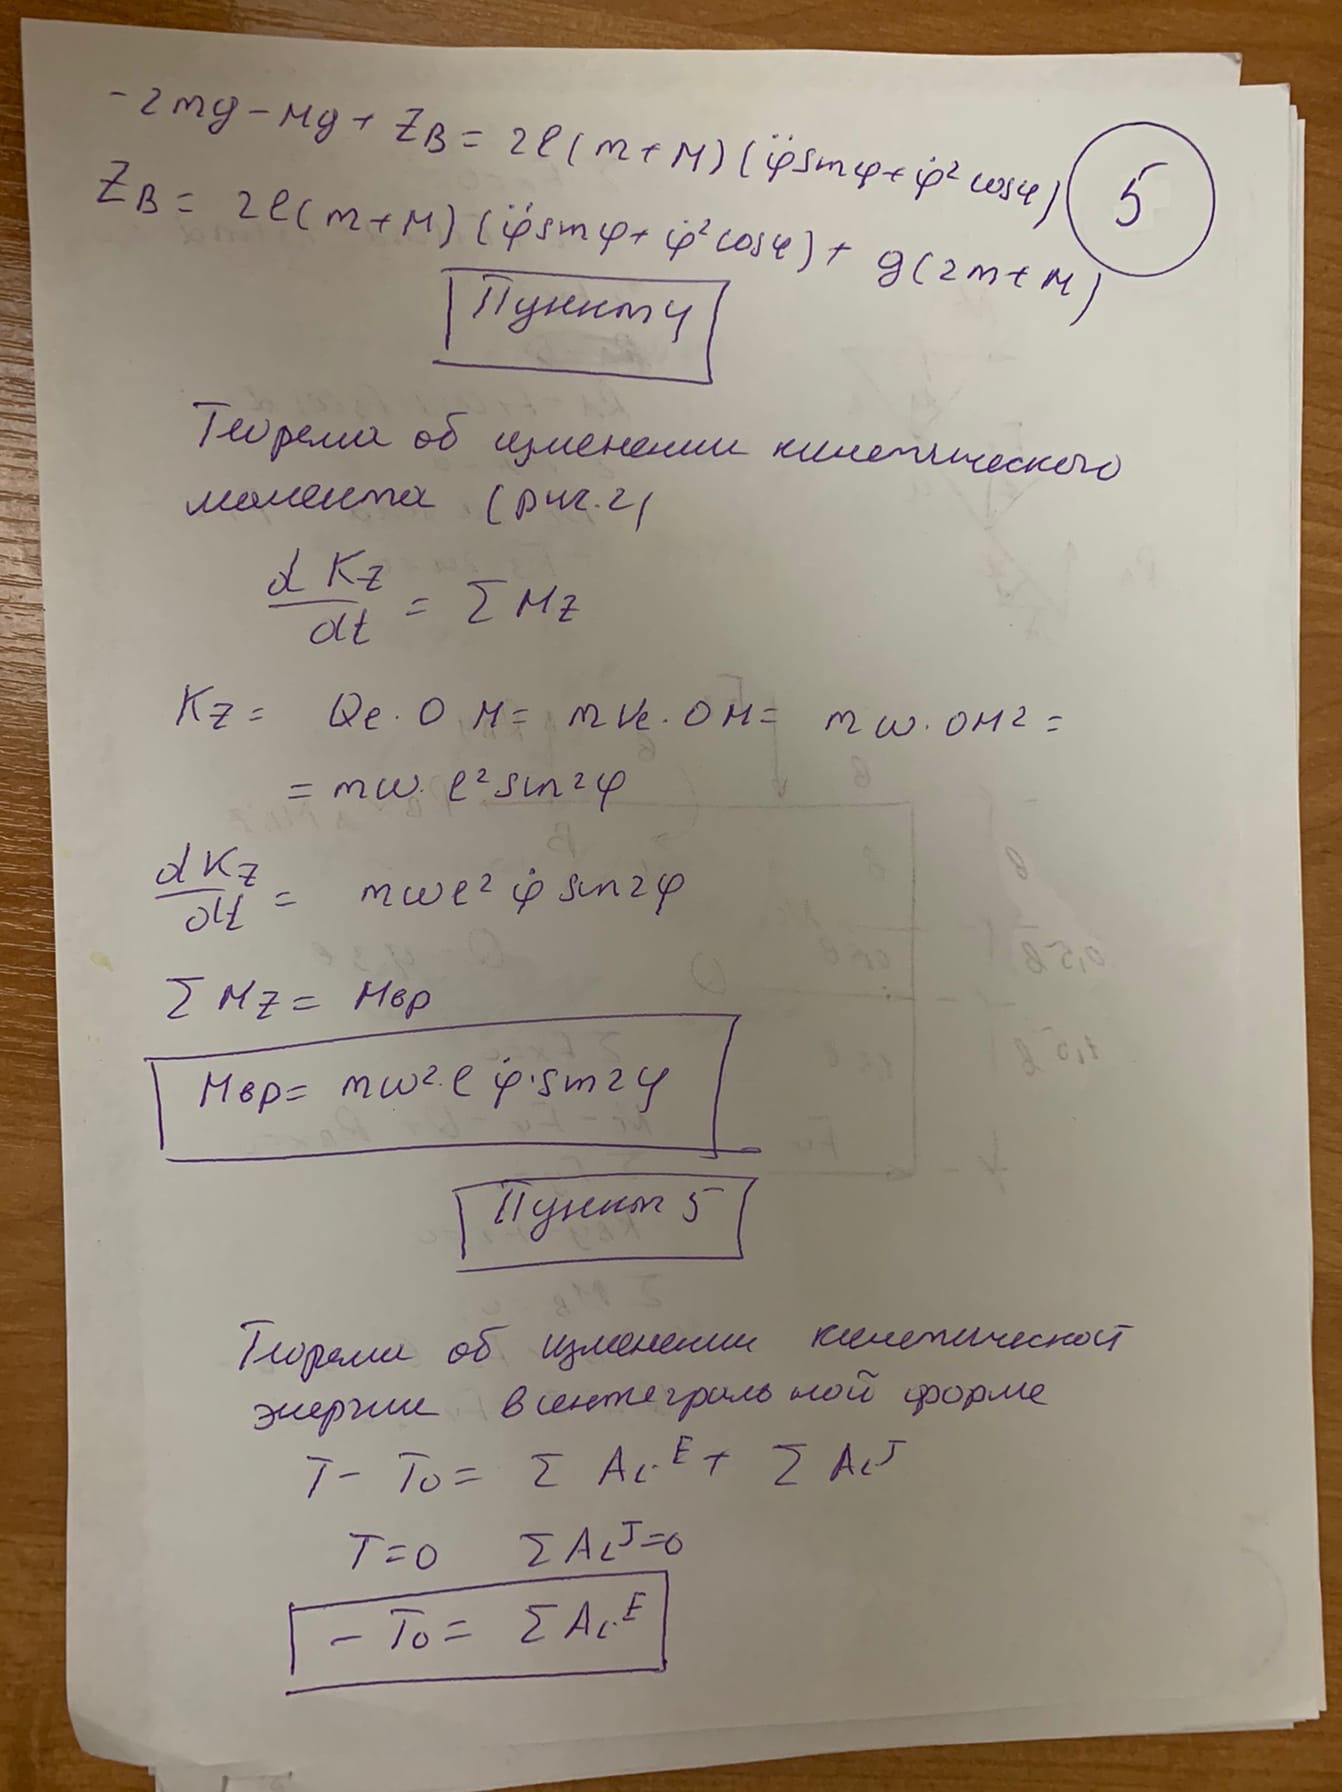 -2mg-Mg+ZB=2l(m+M)(φ̈sinφ+φ̇²cosφ)
5
ZB=2l(m+M)(φ̈sinφ+φ̇²cosφ)+g(2m+M)
Пункт 4
Теорема об изменении кинетического
момента (рис.2)
dKz/dt = ΣMz
Kz= Qe·OM= mVe·OM= mω·OM²=
=mω·l²sin2φ
dKz/dt = mωl²φ̇sin2φ
ΣMz= Mвр
Mвр= mω²·lφ̇·sin2φ
Пункт 5
Теорема об изменении кинетической
энергии в интегральной форме
T-T0= ΣAi^E+ΣAi^J
T=0 ΣAi^J=0
-T0= ΣAi^E